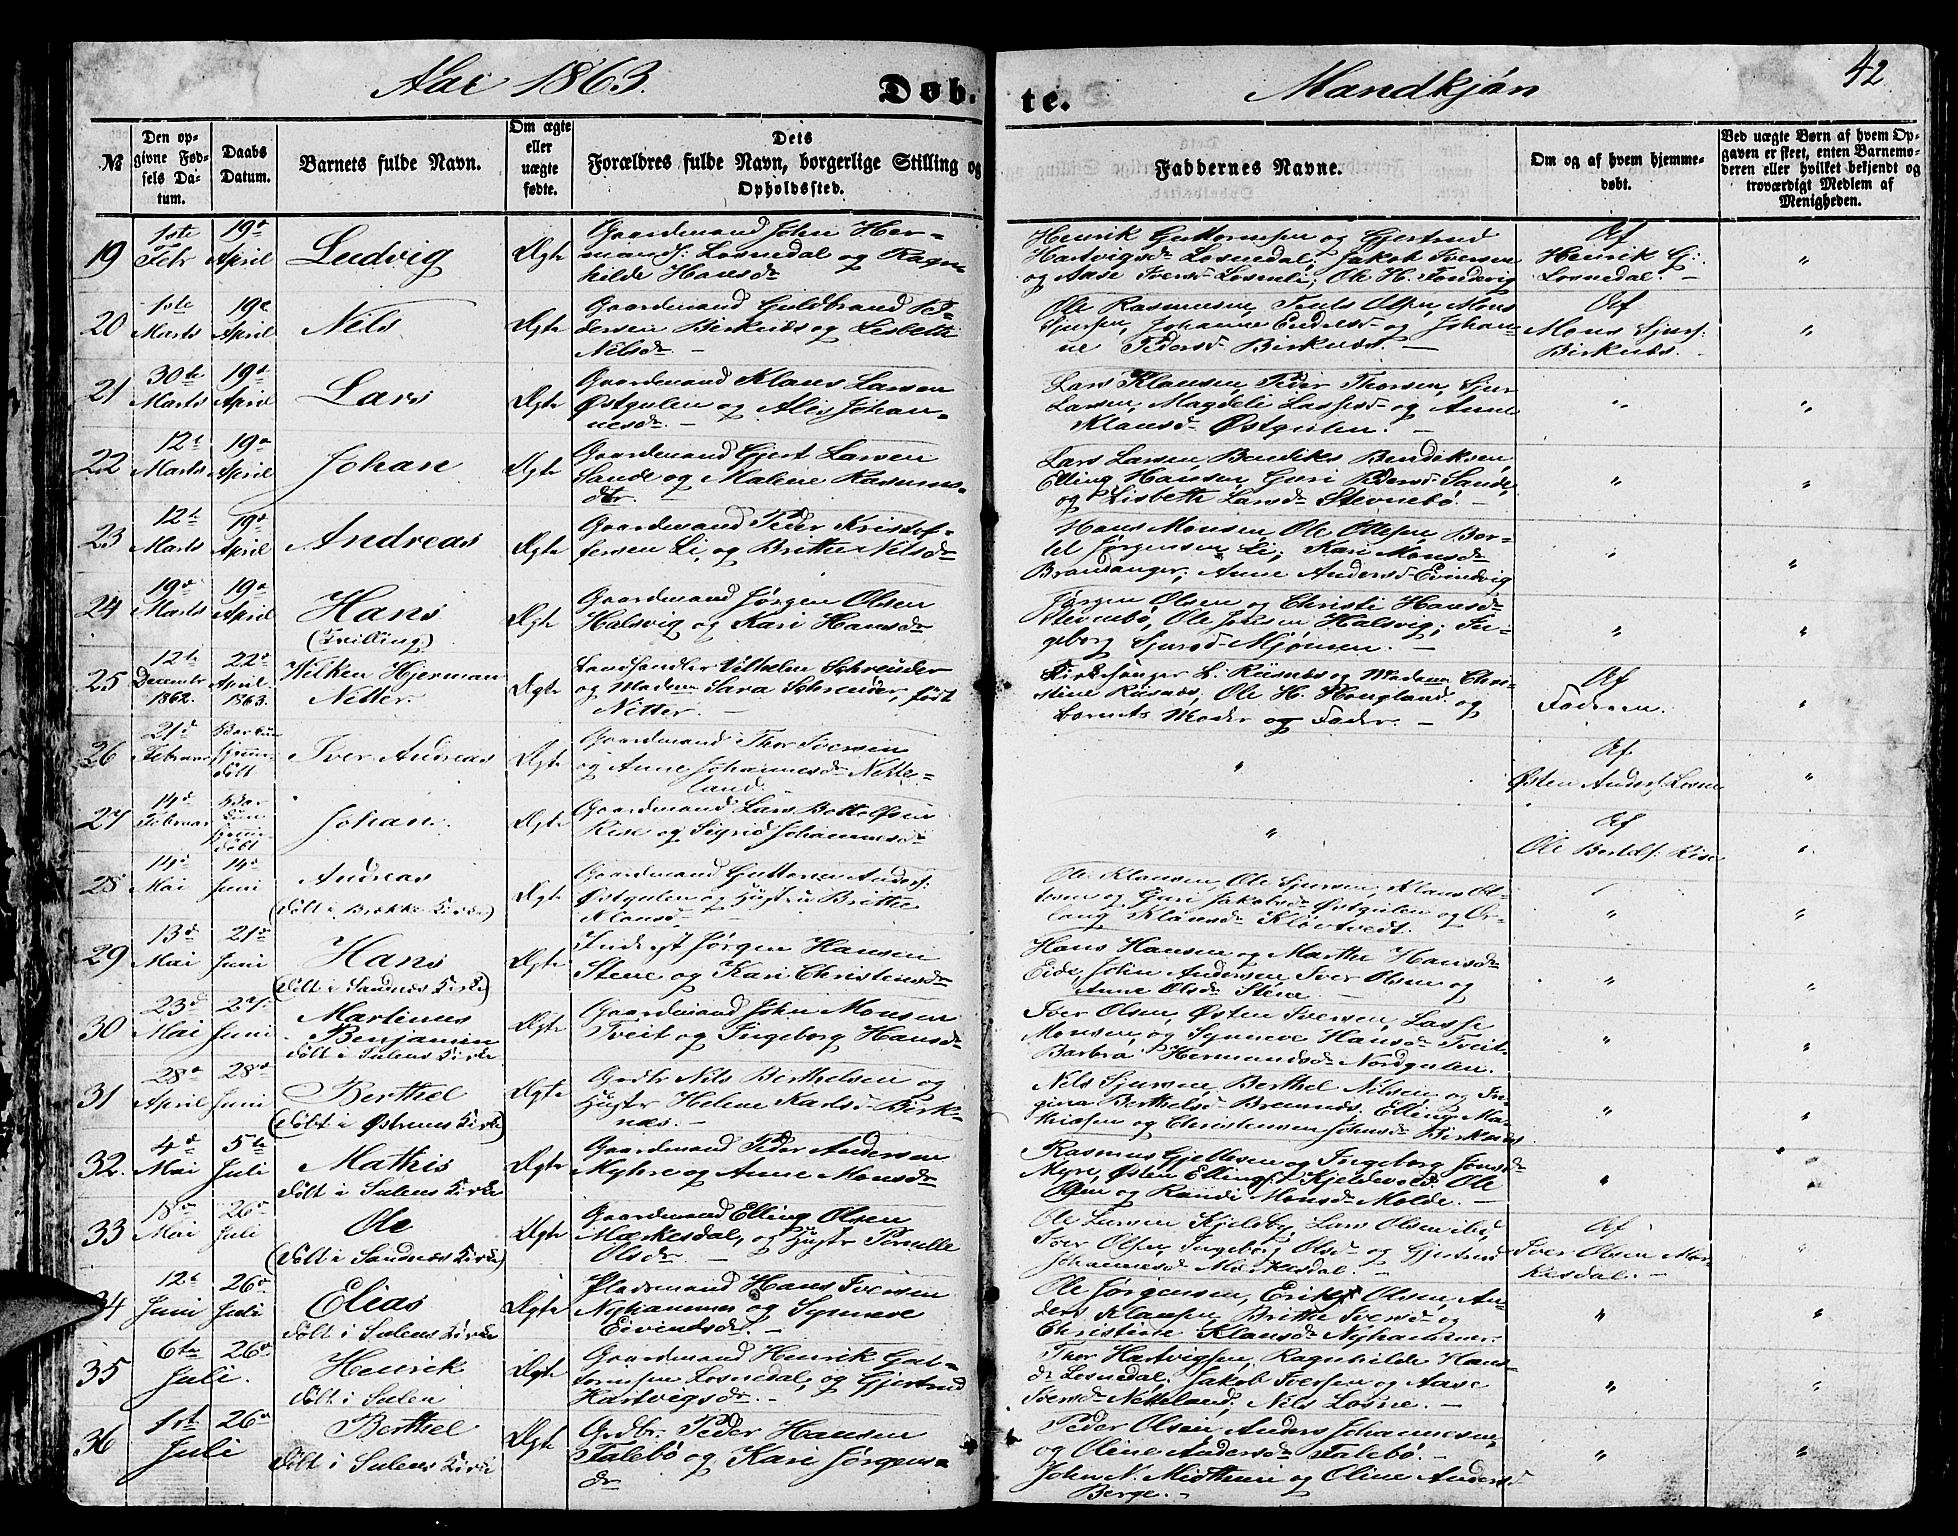 Aar 1863.
Døb-
te.
Mandkjön
42
№
Den op-
givne Fød-
sels Da-
tum.
Daabs
Datum.
Barnets fulde Navn.
Om ægte
eller
uægte
fødte.
Dets
Forældres fulde Navn, borgerlige Stilling og
Opholdssted.
Faddernes Navne.
Om og af hvem hjemme-
døbt.
Ved uægte Børn af hvem Op-
gaven er skeet, enten Barnemo-
deren eller hvilket bekjendt og
troværdigt Medlem af
Menigheden.
19
1ste
Febr
19de
April
Ludvig
Ægte
Gaardmand John Her-
mans. Losnedal og Ragn-
hilde Hansdr
Henrik Guttormsen og Gjertrud
Hartvigsd. Losnedal; Jakob Iversen
og Aase Iversd. Losneli; Ole H. Tendvig
Af
Henrik G.
Losnedal. —
"
20
1ste
Marts
19de
April
Nils
Ægte
Gaardmand Guldbrand Pe-
dersen Birknæs og Lisbeth
Nilsdr. —
Ole Rasmussen, Truls Olsen, Mons
Sjursen, Johanne Endresd. og Johan-
ne Pedersd. Birknæs. —
Af
Mons Sjurs.
Birknæs. —
"
21
30te
Marts
19de
April
Lars
Ægte
Gaardmand Klaus Larsen
Østgulen og Alis Johan-
nesdr. —
Lars Klausen, Peder Thorsen, Sjur
Larsen, Magdeli Lassesd. og Anne
Klausd. Østgulen. —
"
"
22
12te
Marts
19de
April
Johan
Ægte
Gaardmand Gjert Larsen
Sande og Malene Rasmus-
dtr.
Lars Larsen, Bendik Bendiksen,
Elling Hansen, Guri Pedersd. Sande,
og Lisbeth Larsdr. Stevnebö. —
"
"
23
12te
Marts
19de
April
Andreas
Ægte
Gaardmand Peder Kristof-
fersen Li, og Brithe Nilsdr
Hans Monsen, Ole Ollesen, Ber-
tel Jørgensen Li; Kari Monsdr
Brandanger, Anne Andersd. Evindvig
"
"
24
19de
Marts
19de
April
Hans
(Tvilling)
Ægte
Gaardmand Jørgen Olsen
Halsvig og Kari Hansdr
Jørgen Olsen og Christi Hansdr
Stevnebö, Ole Jonsen Halsvig; In-
geborg Sjursd. Mjömen. —
"
"
25
12te
December
1862.
22de
April
1863.
Wilken Hjerman
Netter.
Ægte
Landhandler Vilhelm Schreuder
og Madam Sara Schreuder, född
Netter. —
Kirkesanger L. Risnæs og Madam Chri-
stine Risnæs, Ole H. Hougland og
barnets Moder og Fader. —
Af
Faderen.
"
26
21de
Februar
Barkun
hjemme-
döbt
Iver Andreas
Ægte
Gaardmand Thor Iversen
og Anne Johannesdr. Nette-
land. —
"
Af
Østen Anders. Losne
"
27
14de
Februar
Bar
kun
hjemme-
döbt
Johan.
Ægte
Gaardmand Lars Bottolfsen
Risе og Sigrid Johannesdr
"
Af
Ole Bertels. Rise
"
28
14de
Mai
14de
Juni
Andreas
(döbt i Brække Kirke)
Ægte
Gaardmand Guttorm Anders.
Østgulen og Hustru Brithe
Klausd.
Ole Klausen, Ole Sjursen, Klaus Ol-
sen og Guri Jakobsdr Østgulen og Ør-
jaug Klausdr Klövtvedt.
"
"
29
13de
Mai
21de
Juni
Hans
(döbt i Sandnæs Kirke)
Ægte
Inderst Jørgen Hansen
Stene og Kari Christensdr
Hans Hansen og Marthe Hansdr
Eide, John Andersen, Iver Olsen og
Anne Olsdr Stene. —
"
"
30
23de
Mai
Juni
Martinus
Benjamin
döbt i Sulens Kirke
Ægte
Gaardmand John Monsen
Tveit og Ingeborg Hansdr
Iver Olsen, Østen Iversen, Lasse
Monsen, og Synneve Hansdr Tveit.
Barbra Hermandsdr Nordgulen.
"
"
31
28de
April
28de
Juni
Berthel
(döbt i Østrems Kirke)
Ægte
Grdbr. Nils Berthelsen og
Hustr Helene Karlsd. Birk-
næs. —
Nils Sjursen, Berthel Nilsen og In-
gina Berthelsd. Bremnæs. Elling Ma-
thissen og Christensen Johnsd. Birknæs
"
"
32.
4de
Mai
5te
Juli
Mathis
döbt i Sulens Kirke
Ægte
Gaardmand Peder Andersen
Myhre og Anne Monsdr
Rasmus Gjellesen og Ingeborg Jonsdr
Myre, Østen Ellings. Kjeldevold, Ole
Olsen og Randi Monsdr Molde. —
"
"
33
18de
Mai
26de
Juli
Ole
(döbt i Sandnæs Kirke)
Ægte
Gaardmand Elling Olsen
Mærkesdal, og Hustr Pernille
Olsdr. —
Ole Larsen Kjelsby, Lars Olsen ibid,
Iver Olsen, Ingeborg Olsd. og Gjertrud
Johannesd. Mærkesdal. —
Af
Iver Olsen Mær-
kesdal. —
"
34
12te
Juni
26de
Juli
Elias
döbt i Sulens Kirke
Ægte
Pladsmand Hans Iversen
Nyhammer og Synneve
Eivindsdr. —
Ole Jørgensen, Erik Olsen, An-
ders Klausen, Brithe Iversd. og
Christine Klausdr Nyhammer.
"
"
35
6te
Juli.
26de
Henrik
döbt i Sulen
Ægte
Gaardmand Henrik Gut-
tormsen Losnedal, og Gjertrud
Hartvigsdr. —
Thor Hartvigsen, Ragnhilde Hans-
dr Losnedal; Jakob Iversen og Aase
Iversdr Netteland, Nils Losne. —
"
"
36
1st
Juli
26de
Berthel
döbt i Sulens Kirke
Ægte
Grdbr. Peder Hansen
Taleb&ouml; og Kari Jörgens-
dr
Peder Olsen, Anders Johannesen,
og Oline Andersdr Talebö. —
John N. Midttun og Oline Andersd.
Berge. —
"
"